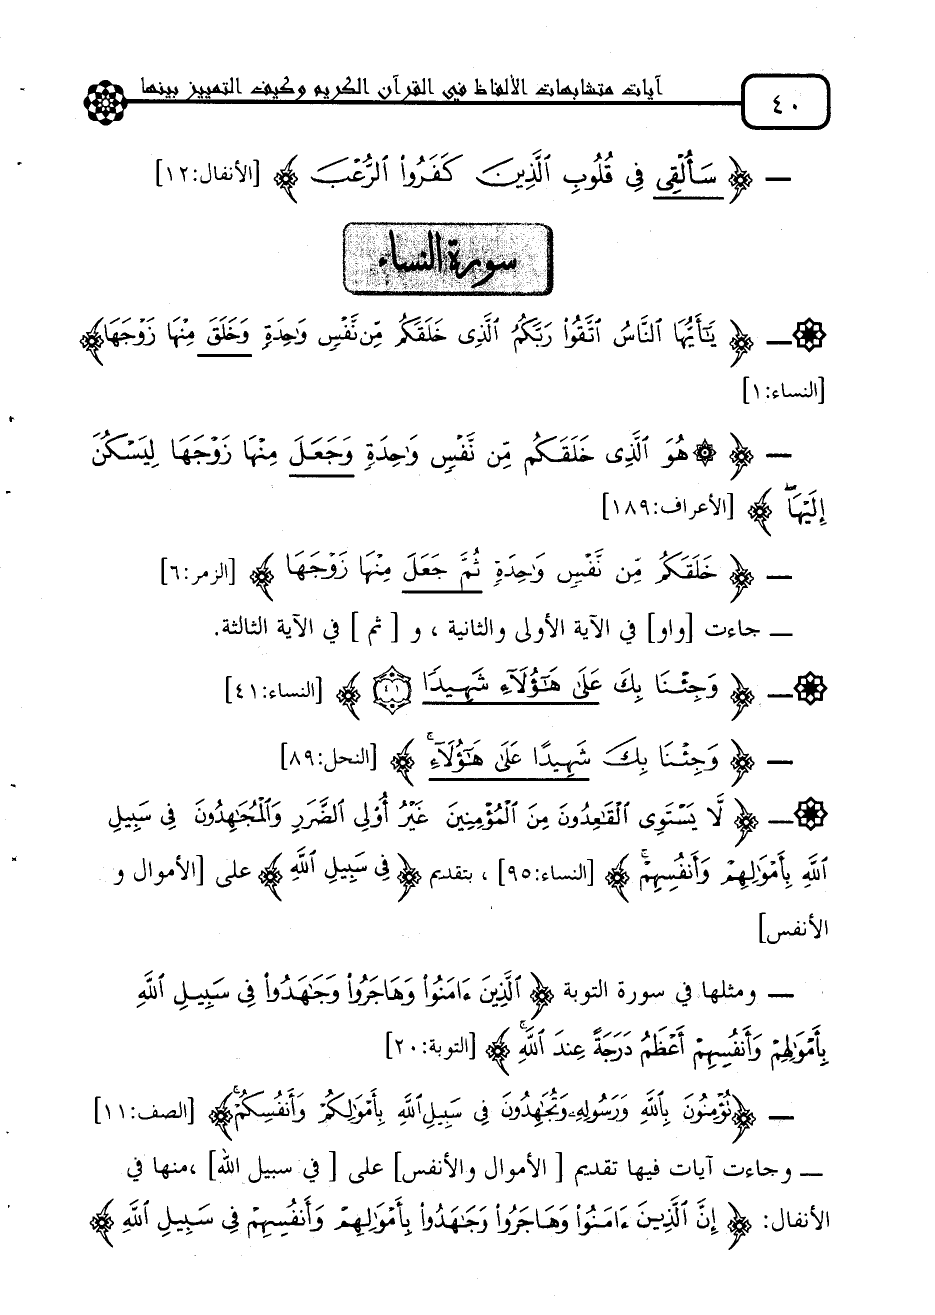 آيات متشابهات الألفاظ في القرآن الكريم وكيف التمييز بينها
٤٠
— ﴿ سَأُلْقِى فِى قُلُوبِ ٱلَّذِينَ كَفَرُوا۟ ٱلرُّعْبَ ﴾ [الأنفال:١٢]
سورة النساء
— ﴿ يَـٰٓأَيُّهَا ٱلنَّاسُ ٱتَّقُوا۟ رَبَّكُمُ ٱلَّذِى خَلَقَكُم مِّن نَّفْسٍ وَٰحِدَةٍ وَخَلَقَ مِنْهَا زَوْجَهَا ﴾
[النساء:١]
— ﴿ ۞ هُوَ ٱلَّذِى خَلَقَكُم مِّن نَّفْسٍ وَٰحِدَةٍ وَجَعَلَ مِنْهَا زَوْجَهَا لِيَسْكُنَ
إِلَيْهَا ۖ ﴾ [الأعراف:١٨٩]
— ﴿ خَلَقَكُم مِّن نَّفْسٍ وَٰحِدَةٍ ثُمَّ جَعَلَ مِنْهَا زَوْجَهَا ﴾ [الزمر:٦]
— جاءت [واو] في الآية الأولى والثانية ، و [ ثم ] في الآية الثالثة.
— ﴿ وَجِئْنَا بِكَ عَلَىٰ هَـٰٓؤُلَآءِ شَهِيدًا ٤١ ﴾ [النساء:٤١]
— ﴿ وَجِئْنَا بِكَ شَهِيدًا عَلَىٰ هَـٰٓؤُلَآءِ ۚ ﴾ [النحل:٨٩]
— ﴿ لَّا يَسْتَوِى ٱلْقَـٰعِدُونَ مِنَ ٱلْمُؤْمِنِينَ غَيْرُ أُو۟لِى ٱلضَّرَرِ وَٱلْمُجَـٰهِدُونَ فِى سَبِيلِ
ٱللَّهِ بِأَمْوَٰلِهِمْ وَأَنفُسِهِمْ ۚ ﴾ [النساء:٩٥] ، بتقديم ﴿ فِى سَبِيلِ ٱللَّهِ ﴾ على [الأموال و
الأنفس]
— ومثلها في سورة التوبة ﴿ ٱلَّذِينَ ءَامَنُوا۟ وَهَاجَرُوا۟ وَجَـٰهَدُوا۟ فِى سَبِيلِ ٱللَّهِ
بِأَمْوَٰلِهِمْ وَأَنفُسِهِمْ أَعْظَمُ دَرَجَةً عِندَ ٱللَّهِ ۚ ﴾ [التوبة:٢٠]
— ﴿ تُؤْمِنُونَ بِٱللَّهِ وَرَسُولِهِۦ وَتُجَـٰهِدُونَ فِى سَبِيلِ ٱللَّهِ بِأَمْوَٰلِكُمْ وَأَنفُسِكُمْ ۚ ﴾ [الصف:١١]
— وجاءت آيات فيها تقديم [ الأموال والأنفس] على [ في سبيل الله] ،منها في
الأنفال: ﴿ إِنَّ ٱلَّذِينَ ءَامَنُوا۟ وَهَاجَرُوا۟ وَجَـٰهَدُوا۟ بِأَمْوَٰلِهِمْ وَأَنفُسِهِمْ فِى سَبِيلِ ٱللَّهِ ﴾